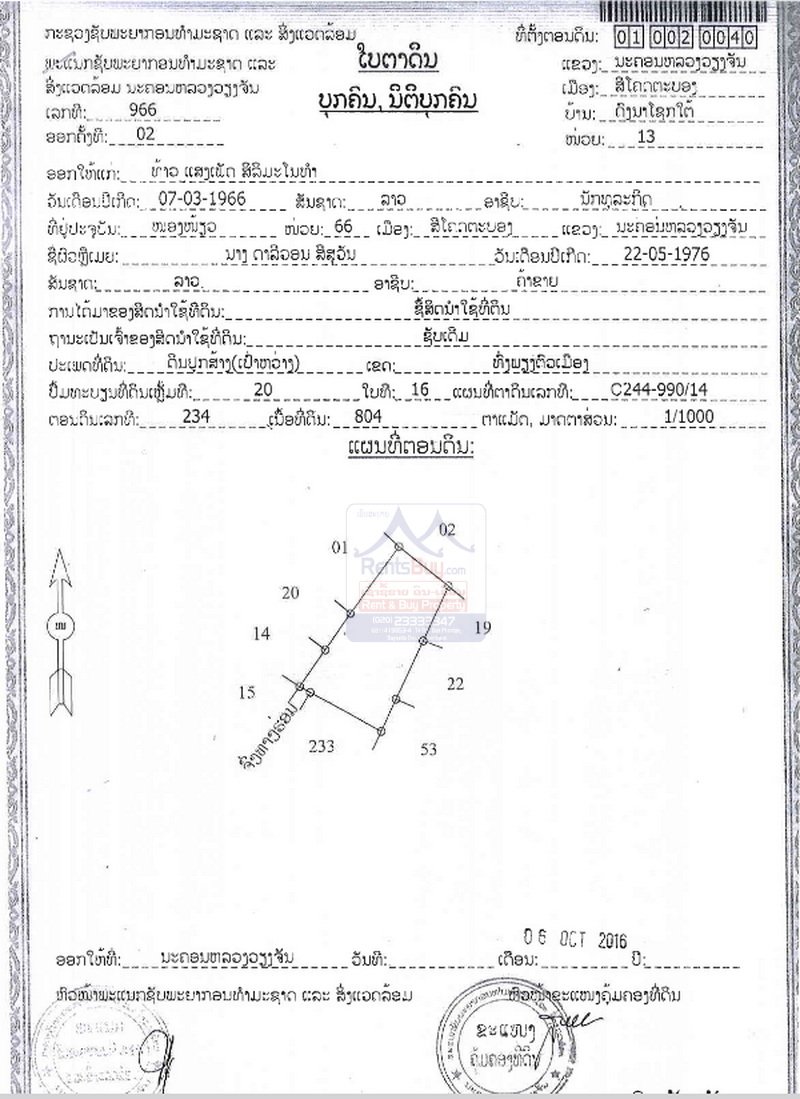 ກະຊວງຊັບພະຍາກອນທຳມະຊາດ ແລະ ສິ່ງແວດລ້ອມ
ທີ່ຕັ້ງຕອນດິນ: 01 002 0040
ພະແນກຊັບພະຍາກອນທຳມະຊາດ ແລະ
ສິ່ງແວດລ້ອມ ນະຄອນຫລວງວຽງຈັນ
ໃບຕາດິນ
ບຸກຄົນ, ນິຕິບຸກຄົນ
ແຂວງ: ນະຄອນຫລວງວຽງຈັນ
ເມືອງ: ສີໂຄດຕະບອງ
ເລກທີ: 966
ບ້ານ: ດົງນາໂຊກໃຕ້
ອອກຄັ້ງທີ: 02
ໜ່ວຍ: 13
ອອກໃຫ້ແກ່: ທ້າວ ແສງເພັດ ສີລິມະໂນທຳ
ວັນເດືອນປີເກີດ: 07-03-1966 ສັນຊາດ: ລາວ ອາຊີບ: ນັກທຸລະກິດ
ທີ່ຢູ່ປະຈຸບັນ: ໜອງໜ້ຽວ ໜ່ວຍ: 66 ເມືອງ: ສີໂຄດຕະບອງ ແຂວງ: ນະຄອນຫລວງວຽງຈັນ
ຊື່ຜົວຫຼືເມຍ: ນາງ ດາລິວອນ ສີສຸວັນ ວັນເດືອນປີເກີດ: 22-05-1976
ສັນຊາດ: ລາວ ອາຊີບ: ຄ້າຂາຍ
ການໄດ້ມາຂອງສິດນຳໃຊ້ທີ່ດິນ: ຊື້ສິດນຳໃຊ້ທີ່ດິນ
ຖານະເປັນເຈົ້າຂອງສິດນຳໃຊ້ທີ່ດິນ: ຊັບເດີມ
ປະເພດທີ່ດິນ: ດິນປູກສ້າງ(ເປົ່າຫວ່າງ) ເຂດ: ທົ່ງພຽງຕົວເມືອງ
ປຶ້ມທະບຽນທີ່ດິນເຫຼັ້ມທີ: 20 ໃບທີ: 16 ແຜນທີ່ຕາດິນເລກທີ: C244-990/14
ຕອນດິນເລກທີ: 234 ເນື້ອທີ່ດິນ: 804 ຕາແມັດ, ມາດຕາສ່ວນ: 1/1000
ແຜນທີ່ຕອນດິນ:
02
01
RentsBuy.com
Rent & Buy Property
(020) 23333347
20
14
19
15
22
233
53
06 OCT 2016
ອອກໃຫ້ທີ່: ນະຄອນຫລວງວຽງຈັນ ວັນທີ: ເດືອນ: ປີ:
ຫົວໜ້າພະແນກຊັບພະຍາກອນທຳມະຊາດ ແລະ ສິ່ງແວດລ້ອມ
ຫົວໜ້າຂະແໜງຄຸ້ມຄອງທີ່ດິນ
ຂະແໜງ
ຄຸ້ມຄອງທີ່ດິນ